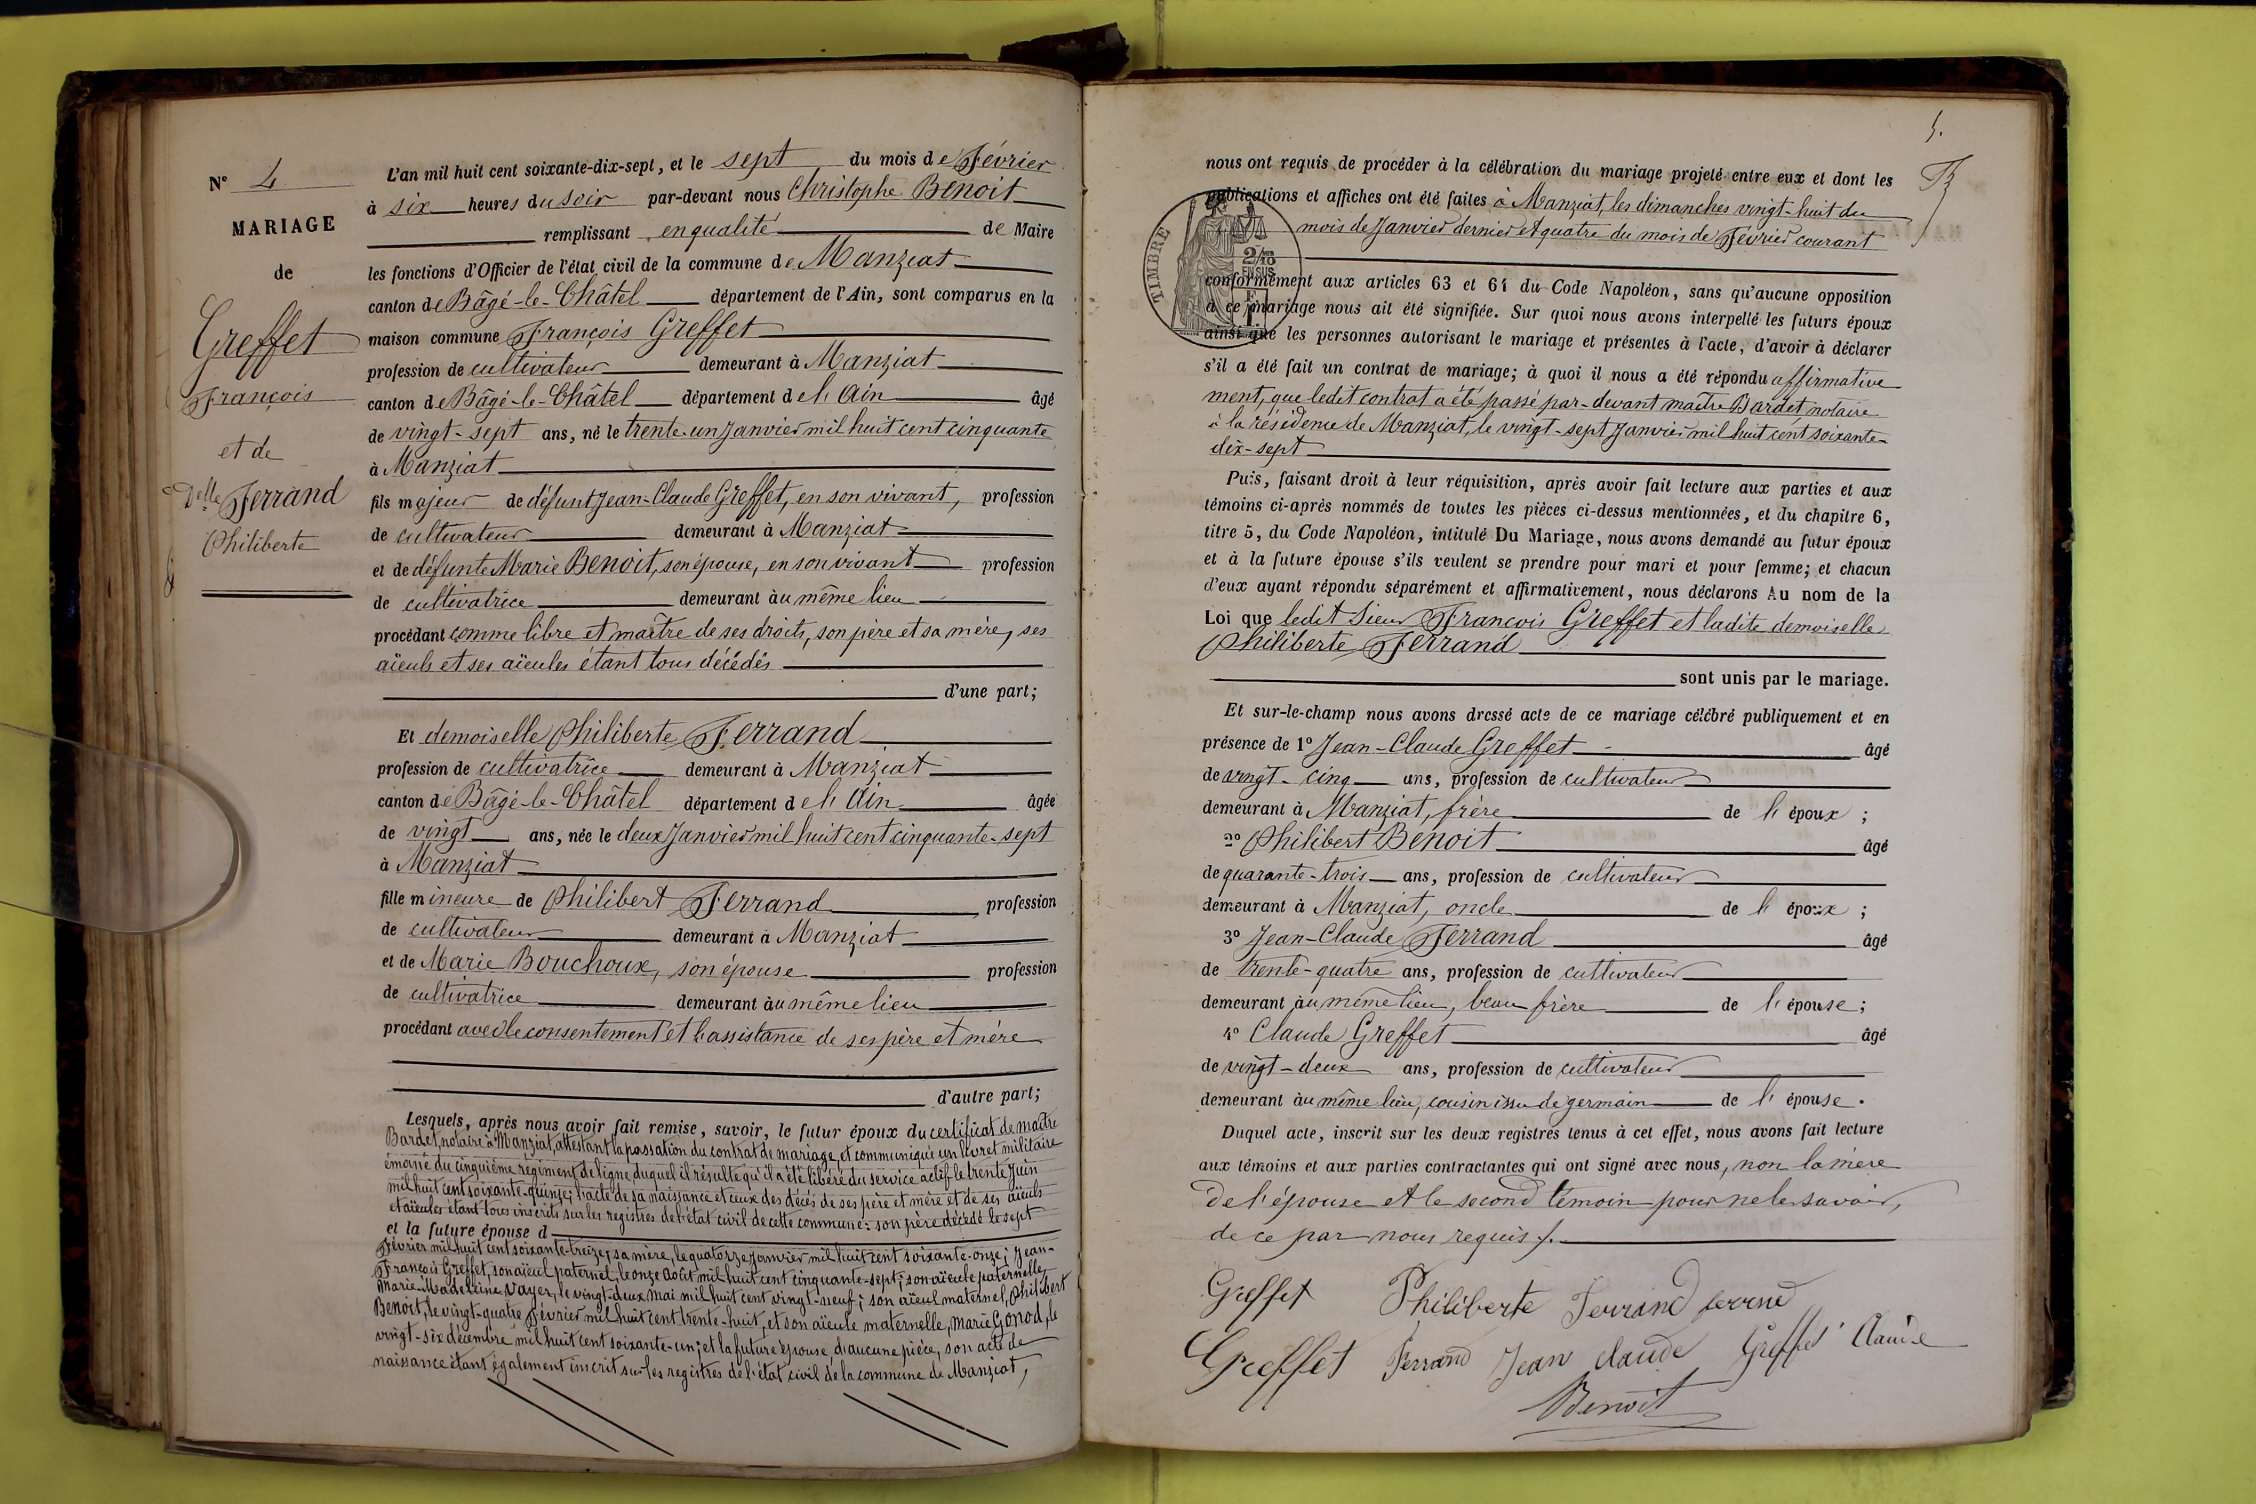 N° 4
MARIAGE
de
Greffet
François
et de
Delle Ferrand
Philiberte
L'an mil huit cent soixante-dix-sept, et le sept du mois de Février
à six heures du soir par-devant nous Christophe Benoit
remplissant en qualité de Maire
les fonctions d'Officier de l'état civil de la commune de Manziat
canton de Bâgé-le-Châtel département de l'Ain, sont comparus en la
maison commune François Greffet
profession de cultivateur demeurant à Manziat
canton de Bâgé-le-Châtel département de l'Ain âgé
de vingt-sept ans, né le trente-un Janvier mil huit cent cinquante
à Manziat
fils majeur de défunt Jean-Claude Greffet, en son vivant, profession
de cultivateur demeurant à Manziat
et de défunte Marie Benoit, son épouse, en son vivant profession
de cultivatrice demeurant au même lieu
procédant comme libre et maître de ses droits, son père et sa mère, ses
aïeuls et ses aïeules étant tous décédés
d'une part;
Et demoiselle Philiberte Ferrand
profession de cultivatrice demeurant à Manziat
canton de Bâgé-le-Châtel département de l'Ain âgée
de vingt ans, née le deux Janvier mil huit cent cinquante-sept
à Manziat
fille mineure de Philibert Ferrand profession
de cultivateur demeurant à Manziat
et de Marie Bouchoux, son épouse profession
de cultivatrice demeurant au même lieu
procédant avec le consentement et l'assistance de ses père et mère
d'autre part;
Lesquels, après nous avoir fait remise, savoir, le futur époux du certificat de maître
Bardet, notaire à Manziat, attestant la passation du contrat de mariage, et communiqué un livret militaire
émané du cinquième régiment de ligne duquel il résulte qu'il a été libéré du service actif le trente Juin
mil huit cent soixante-quinze; l'acte de sa naissance et ceux des décès de ses père et mère et de ses aïeuls
et aïeules étant tous inscrits sur les registres de l'état civil de cette commune: son père décédé le sept
et la future épouse d
Février mil huit cent soixante-treize, sa mère, le quatorze Janvier mil huit cent soixante-onze; Jean-
François Greffet, son aïeul paternel, le onze Août mil huit cent cinquante-sept; son aïeule paternelle,
Marie-Madeleine Vayer, le vingt-deux Mai mil huit cent vingt-neuf; son aïeul maternel, Philibert
Benoit, le vingt-quatre Février mil huit cent trente-huit, et son aïeule maternelle, Marie Gonod, le
vingt-six décembre mil huit cent soixante-un; et la future épouse d'aucune pièce, son acte de
naissance étant également inscrit sur les registres de l'état civil de la commune de Manziat,
5.
nous ont requis de procéder à la célébration du mariage projeté entre eux et dont les
publications et affiches ont été faites à Manziat, les dimanches vingt-huit du
mois de Janvier dernier et quatre du mois de Février courant
TIMBRE
2/10
EN SUS
conformément aux articles 63 et 64 du Code Napoléon, sans qu'aucune opposition
à ce mariage nous ait été signifiée. Sur quoi nous avons interpellé les futurs époux
ainsi que les personnes autorisant le mariage et présentes à l'acte, d'avoir à déclarer
s'il a été fait un contrat de mariage; à quoi il nous a été répondu affirmative
ment, que ledit contrat a été passé par-devant maître Bardet notaire
à la résidence de Manziat, le vingt-sept Janvier mil huit cent soixante-
dix-sept
Puis, faisant droit à leur réquisition, après avoir fait lecture aux parties et aux
témoins ci-après nommés de toutes les pièces ci-dessus mentionnées, et du chapitre 6,
titre 5, du Code Napoléon, intitulé Du Mariage, nous avons demandé au futur époux
et à la future épouse s'ils veulent se prendre pour mari et pour femme; et chacun
d'eux ayant répondu séparément et affirmativement, nous déclarons Au nom de la
Loi que ledit Sieur François Greffet et ladite demoiselle
Philiberte Ferrand
sont unis par le mariage.
Et sur-le-champ nous avons dressé acte de ce mariage célébré publiquement et en
présence de 1° Jean-Claude Greffet âgé
de vingt-cinq ans, profession de cultivateur
demeurant à Manziat, frère de l'époux ;
2° Philibert Benoit âgé
de quarante-trois ans, profession de cultivateur
demeurant à Manziat, oncle de l'époux ;
3° Jean-Claude Ferrand âgé
de trente-quatre ans, profession de cultivateur
demeurant au même lieu, beau frère de l'épouse ;
4° Claude Greffet âgé
de vingt-deux ans, profession de cultivateur
demeurant au même lieu, cousin issu de germain de l'épouse.
Duquel acte, inscrit sur les deux registres tenus à cet effet, nous avons fait lecture
aux témoins et aux parties contractantes qui ont signé avec nous, non la mère
de l'épouse et le second témoin pour ne le savoir,
de ce par nous requis.
Greffet Philiberte Ferrand
Greffet Ferrand Jean Claude Greffet Claude
Benoit